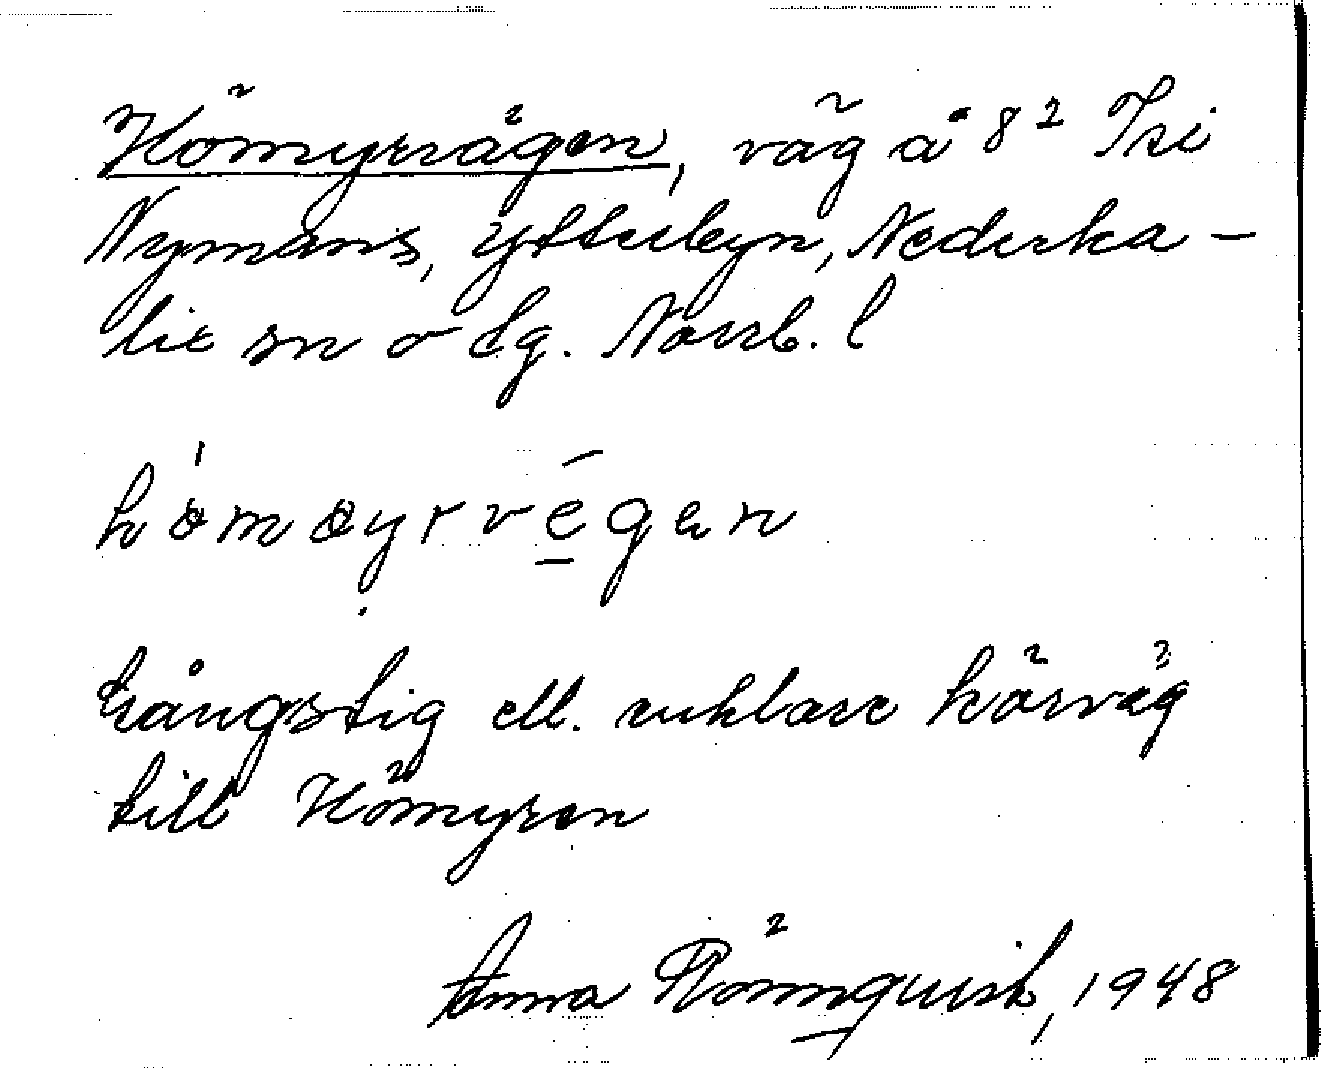 Hömyrvägen, väg å 8² Tsi
Nymans, Ytterbyn, Nederka-
lix sn o tg. Norrb. l
hömøyrvégen
Gångstig ell. enklare körväg
till Hömyren
Anna Rönnquist, 1948